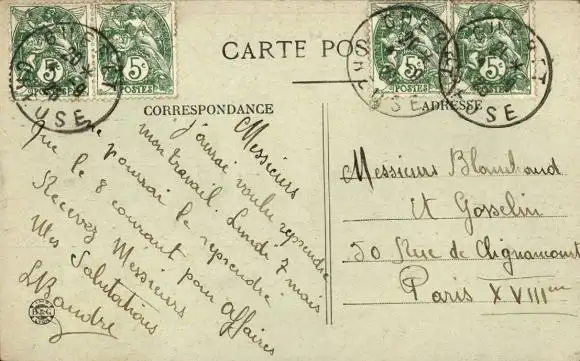 CARTE POS
CORRESPONDANCE
ADRESSE
5c
POSTES
5c
POSTES
5c
POSTES
5c
POSTES
GUERET
CREUSE
Messieurs
j'aurai voulu reprendre
mon travail Lundi 7 mais
ne pourrai le reprendre
que le 8 courant pour affaires
Recevez Messieurs
Mes Salutations
Messieurs
et Gosselin
50 Rue de Clignancourt
Paris XVIIIem
B&G